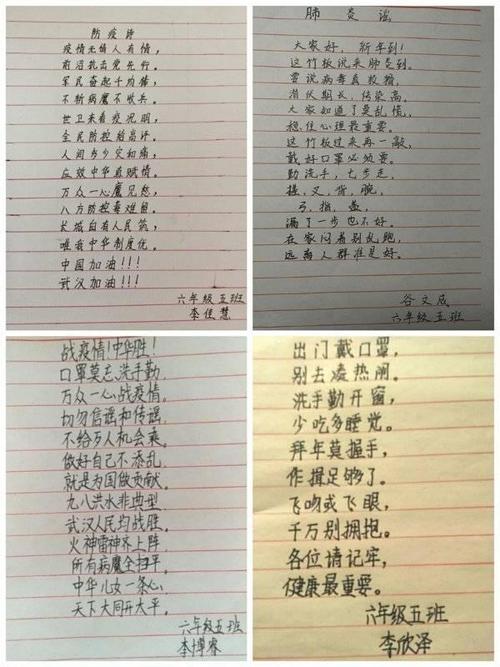 防疫诗
疫情无情人有情,
前沿抗击党先行。
军民奋起千均棒,
不斩病魔不收兵。
世卫来看疫况明,
全民防控给高评。
人间多少灾和痛,
应效中华真赋情。
万众一心魔见愁,
八方防控毒难留。
长城自有人民筑,
唯我中华制度优。
中国加油!!!
武汉加油!!!
六年级五班
李佳慧
肺炎谣
大家好,新年到!
这竹板说来肺炎到。
要说病毒真狡猾,
潜伏期长,传染高。
大家知道了是乱慌,
稳住心理最重要。
这竹板过来再一敲,
戴好口罩必须要。
勤洗手,七步走,
搓,叉,背,腕,
弓,指,盖,
漏了一步也不好。
在家闷着别乱跑,
远离人群准是好。
谷文成
六年级五班
战疫情!中华胜!
口罩莫忘洗手勤,
万众一心战疫情。
切勿信谣和传谣,
不给万人机会乘。
做好自己不添乱,
就是为国做贡献。
九八洪水非典型
武汉人民均战胜。
火神雷神齐上阵
所有病魔全扫平。
中华儿女一条心,
天下大同开太平。
六年级五班
李博睿
出门戴口罩,
别去凑热闹。
洗手勤开窗,
少吃多睡觉。
拜年莫握手,
作揖足够了。
飞吻或飞眼,
千万别拥抱。
各位请记牢,
健康最重要。
六年级五班
李欣泽